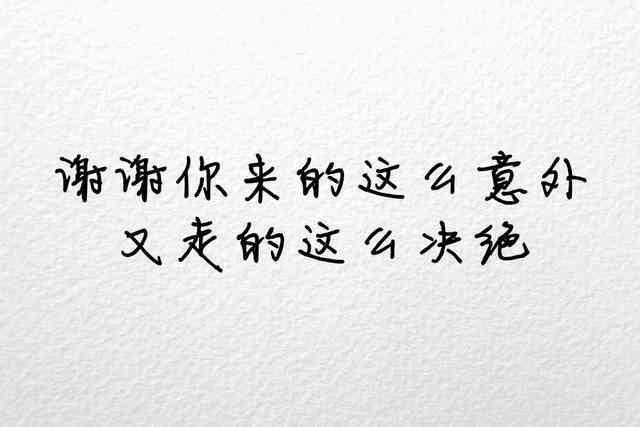 谢谢你来的这么意外
又走的这么决绝